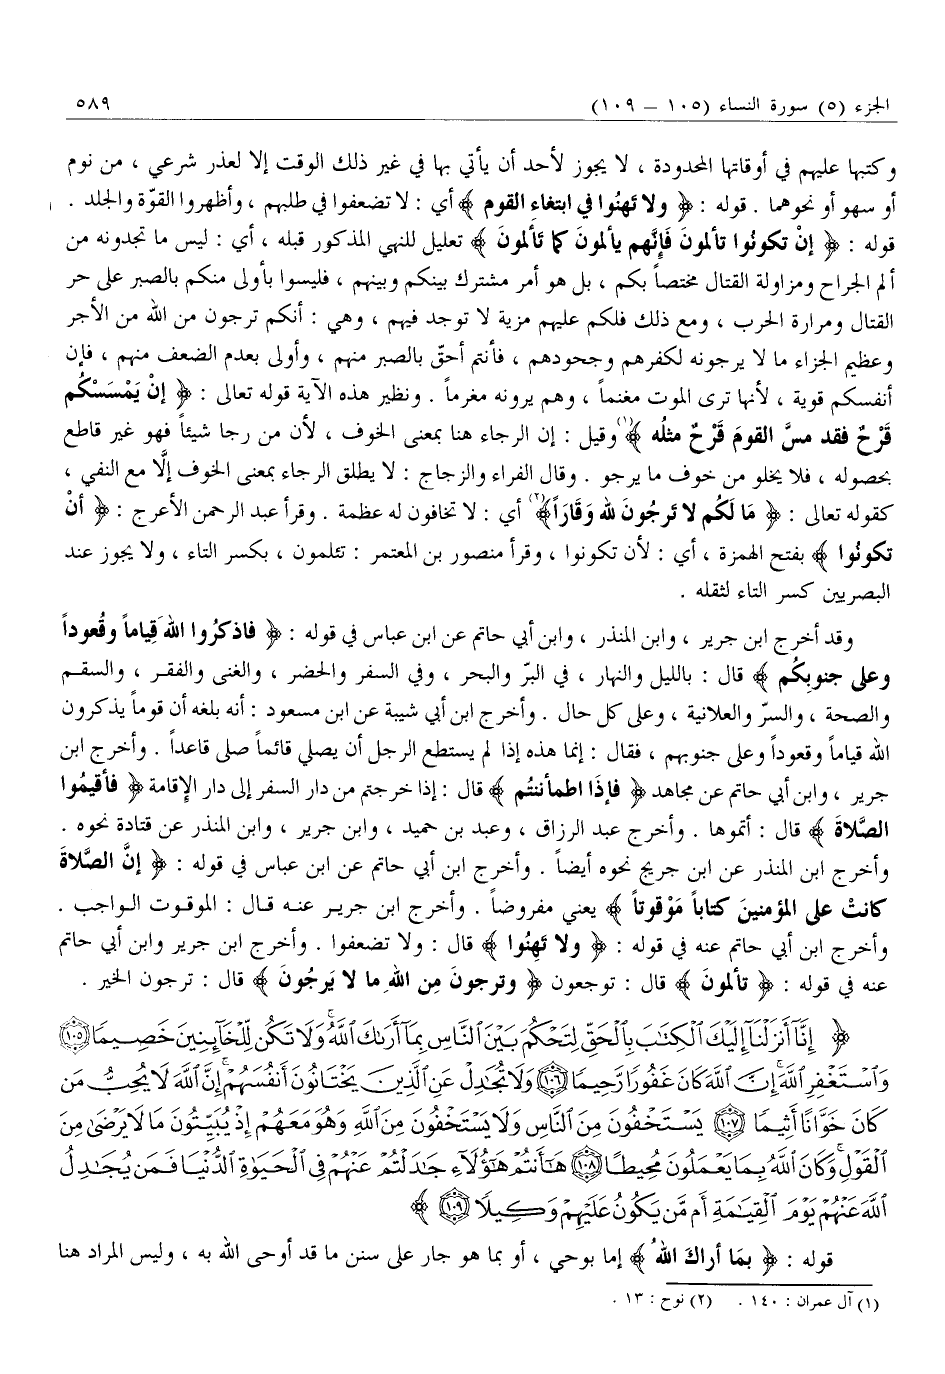 الجزء (٥) سورة النساء (١٠٥ – ١٠٩) ٥٨٩
وكتبها عليهم في أوقاتها المحدودة ، لا يجوز لأحد أن يأتي بها في غير ذلك الوقت إلا لعذر شرعي ، من نوم
أو سهو أو نحوهما . قوله : ﴿ ولا تَهِنُوا في ابتغاءِ القوم ﴾ أي : لا تضعفوا في طلبهم ، وأظهروا القوّة والجلد .
قوله : ﴿ إنْ تكونُوا تألمونَ فَإنَّهم يألمونَ كما تَألمونَ ﴾ تعليل للنهي المذكور قبله ، أي : ليس ما تجدونه من
ألم الجراح ومزاولة القتال مختصاً بكم ، بل هو أمر مشترك بينكم وبينهم ، فليسوا بأولى منكم بالصبر على حر
القتال ومرارة الحرب ، ومع ذلك فلكم عليهم مزية لا توجد فيهم ، وهي : أنكم ترجون من الله من الأجر
وعظيم الجزاء ما لا يرجونه لكفرهم وجحودهم ، فأنتم أحقّ بالصبر منهم ، وأولى بعدم الضعف منهم ، فإن
أنفسكم قوية ، لأنها ترى الموت مغنماً ، وهم يرونه مغرماً . ونظير هذه الآية قوله تعالى : ﴿ إنْ يَمْسَسْكُم
قَرْحٌ فقد مسَّ القومَ قَرْحٌ مثلُه ﴾(١) وقيل : إن الرجاء هنا بمعنى الخوف ، لأن من رجا شيئاً فهو غير قاطع
بحصوله ، فلا يخلو من خوف ما يرجو . وقال الفراء والزجاج : لا يطلق الرجاء بمعنى الخوف إلَّا مع النفي ،
كقوله تعالى : ﴿ مَا لَكُم لا تَرجُونَ للهِ وَقَارَاً ﴾(٢) أي : لا تخافون له عظمة . وقرأ عبد الرحمن الأعرج : ﴿ أنْ
تكونُوا ﴾ بفتح الهمزة ، أي : لأن تكونوا ، وقرأ منصور بن المعتمر : تئلمون ، بكسر التاء ، ولا يجوز عند
البصريين كسر التاء لثقله .
وقد أخرج ابن جرير ، وابن المنذر ، وابن أبي حاتم عن ابن عباس في قوله : ﴿ فاذكرُوا اللهَ قِياماً وقُعوداً
وعلى جنوبِكُم ﴾ قال : بالليل والنهار ، في البرّ والبحر ، وفي السفر والحضر ، والغنى والفقر ، والسقم
والصحة ، والسرّ والعلانية ، وعلى كل حال . وأخرج ابن أبي شيبة عن ابن مسعود : أنه بلغه أن قوماً يذكرون
الله قياماً وقعوداً وعلى جنوبهم ، فقال : إنما هذه إذا لم يستطع الرجل أن يصلي قائماً صلى قاعداً . وأخرج ابن
جرير ، وابن أبي حاتم عن مجاهد ﴿ فإذَا اطمأننتُم ﴾ قال : إذا خرجتم من دار السفر إلى دار الإقامة ﴿ فأقيمُوا
الصَّلاةَ ﴾ قال : أتموها . وأخرج عبد الرزاق ، وعبد بن حميد ، وابن جرير ، وابن المنذر عن قتادة نحوه .
وأخرج ابن المنذر عن ابن جريج نحوه أيضاً . وأخرج ابن أبي حاتم عن ابن عباس في قوله : ﴿ إنَّ الصَّلاةَ
كانتْ على المؤمنينَ كتاباً مَوْقوتاً ﴾ يعني مفروضاً . وأخرج ابن جرير عنه قال : الموقوت الواجب .
وأخرج ابن أبي حاتم عنه في قوله : ﴿ ولا تَهِنُوا ﴾ قال : ولا تضعفوا . وأخرج ابن جرير وابن أبي حاتم
عنه في قوله : ﴿ تألمونَ ﴾ قال : توجعون ﴿ وترجونَ مِن اللهِ ما لا يَرجُونَ ﴾ قال : ترجون الخير .
﴿ إِنَّآ أَنزَلْنَآ إِلَيْكَ ٱلْكِتَٰبَ بِٱلْحَقِّ لِتَحْكُمَ بَيْنَ ٱلنَّاسِ بِمَآ أَرَىٰكَ ٱللَّهُۚ وَلَا تَكُن لِّلْخَآئِنِينَ خَصِيمًا ١٠٥
وَٱسْتَغْفِرِ ٱللَّهَۖ إِنَّ ٱللَّهَ كَانَ غَفُورًا رَّحِيمًا ١٠٦ وَلَا تُجَٰدِلْ عَنِ ٱلَّذِينَ يَخْتَانُونَ أَنفُسَهُمْۚ إِنَّ ٱللَّهَ لَا يُحِبُّ مَن
كَانَ خَوَّانًا أَثِيمًا ١٠٧ يَسْتَخْفُونَ مِنَ ٱلنَّاسِ وَلَا يَسْتَخْفُونَ مِنَ ٱللَّهِ وَهُوَ مَعَهُمْ إِذْ يُبَيِّتُونَ مَا لَا يَرْضَىٰ مِنَ
ٱلْقَوْلِۚ وَكَانَ ٱللَّهُ بِمَا يَعْمَلُونَ مُحِيطًا ١٠٨ هَٰٓأَنتُمْ هَٰٓؤُلَآءِ جَٰدَلْتُمْ عَنْهُمْ فِى ٱلْحَيَوٰةِ ٱلدُّنْيَا فَمَن يُجَٰدِلُ
ٱللَّهَ عَنْهُمْ يَوْمَ ٱلْقِيَٰمَةِ أَم مَّن يَكُونُ عَلَيْهِمْ وَكِيلًا ١٠٩ ﴾
قوله : ﴿ بمَا أراكَ اللهُ ﴾ إما بوحي ، أو بما هو جار على سنن ما قد أوحى الله به ، وليس المراد هنا
(١) آل عمران : ١٤٠ . (٢) نوح : ١٣ .